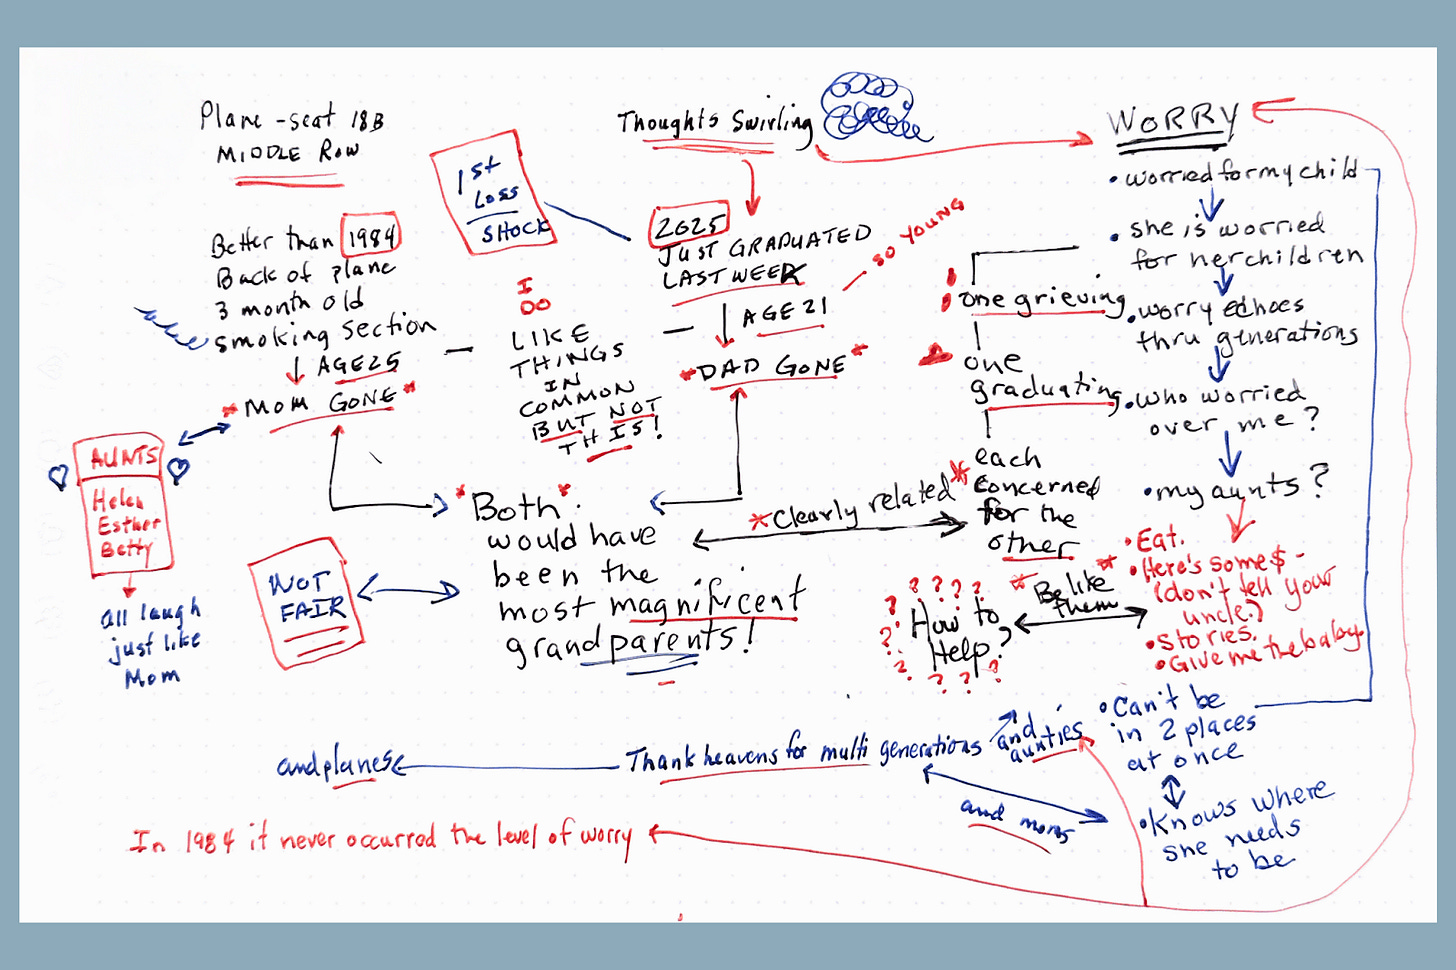 Plane - seat 18B
MIDDLE ROW
Better than 1984
Back of plane
3 month old
smoking section
AGE 25
MOM GONE
AUNTS
Helen
Esther
Betty
all laugh
just like
Mom
1st
Loss
SHOCK
I
DO
LIKE
THINGS
IN
COMMON
BUT NOT
THIS!
Thoughts Swirling
2025
JUST GRADUATED
LAST WEEK
SO YOUNG
AGE 21
DAD GONE
NOT
FAIR
Both
would have
been the
most magnificent
grandparents!
Clearly related
one grieving
one
graduating
each
concerned
for the
other
WORRY
• worried for my child
• she is worried
for her children
• worry echoes
thru generations
• who worried
over me?
• my aunts?
• Eat.
• Here's some $ -
(don't tell your
uncle.)
• Stories.
• Give me the baby.
Be like
them
? ? ? ?
How to
Help?
• Can't be
in 2 places
at once
• Knows where
she needs
to be
Thank heavens for multi generations
and
aunties
and moms
and planes
In 1984 it never occurred the level of worry